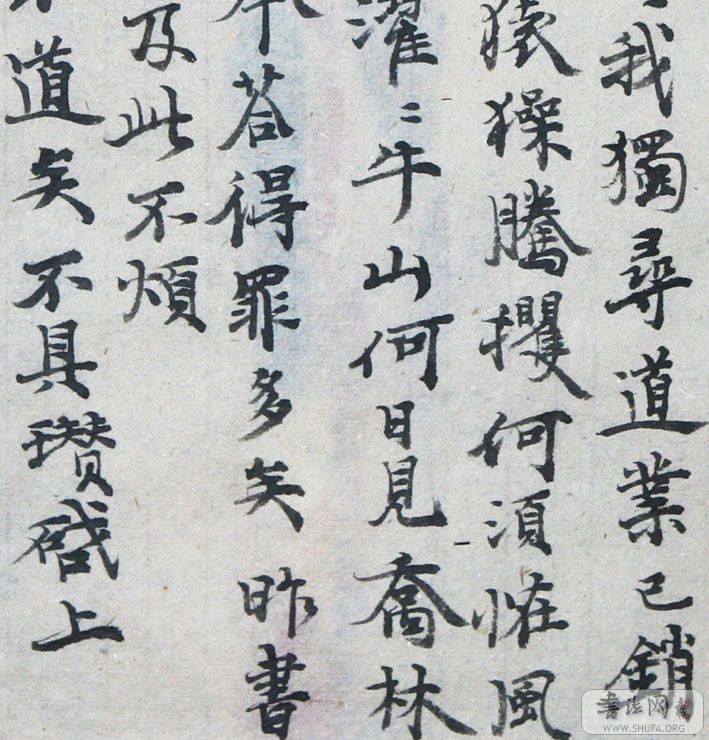 我獨尋道業已銷
猿猱騰攫何須恠風
濯〻牛山何日見喬林
答得罪多矣昨書
及此不煩
道矣不具瓚啓上
書法网
WWW.SHUFA.ORG